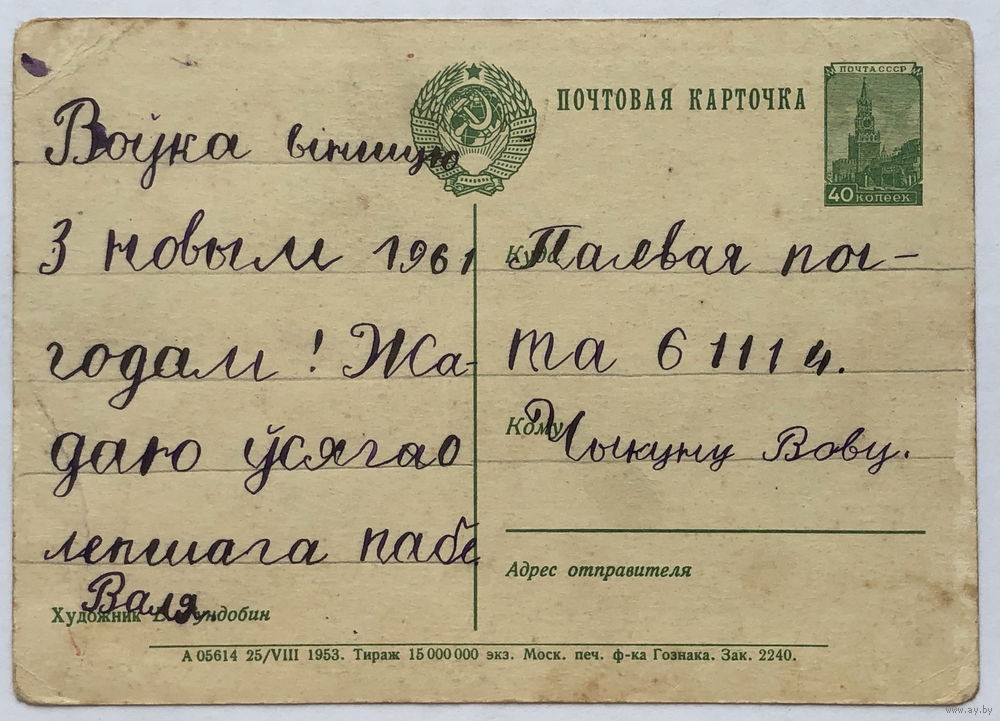 ПОЧТА СССР
ПОЧТОВАЯ КАРТОЧКА
40 КОПЕЕК
Воўка віншую
З новым 1961
годам! Жа-
даю ўсяго
лепшага табе
Валя.
Художник Е. Гундобин
Куда
Палявая пош-
та 61114.
Кому
Чыкуну Вову.
Адрес отправителя
А 05614 25/VIII 1953. Тираж 15 000 000 экз. Моск. печ. ф-ка Гознака. Зак. 2240.
www.ay.by